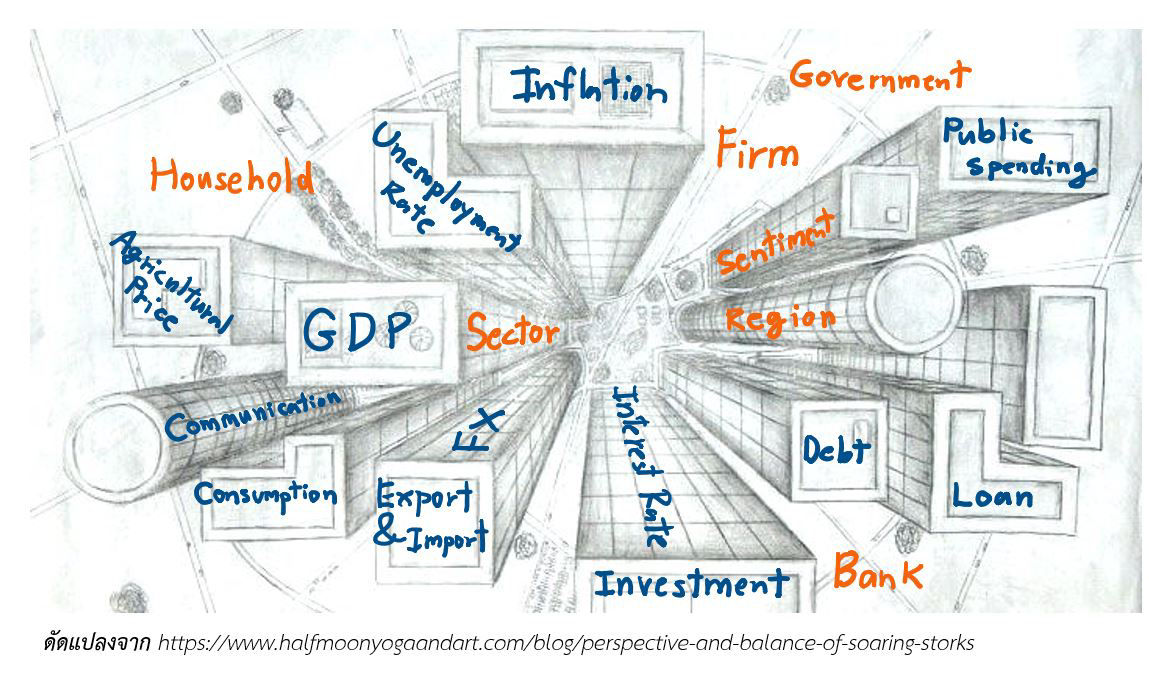 Inflation
Government
Unemployment
Rate
Firm
Public
Spending
Household
Agricultural
Price
Sentiment
GDP
Sector
Region
Communication
FX
Interest Rate
Consumption
Export
& Import
Debt
Loan
Investment
Bank
ดัดแปลงจาก https://www.halfmoonyogaandart.com/blog/perspective-and-balance-of-soaring-storks